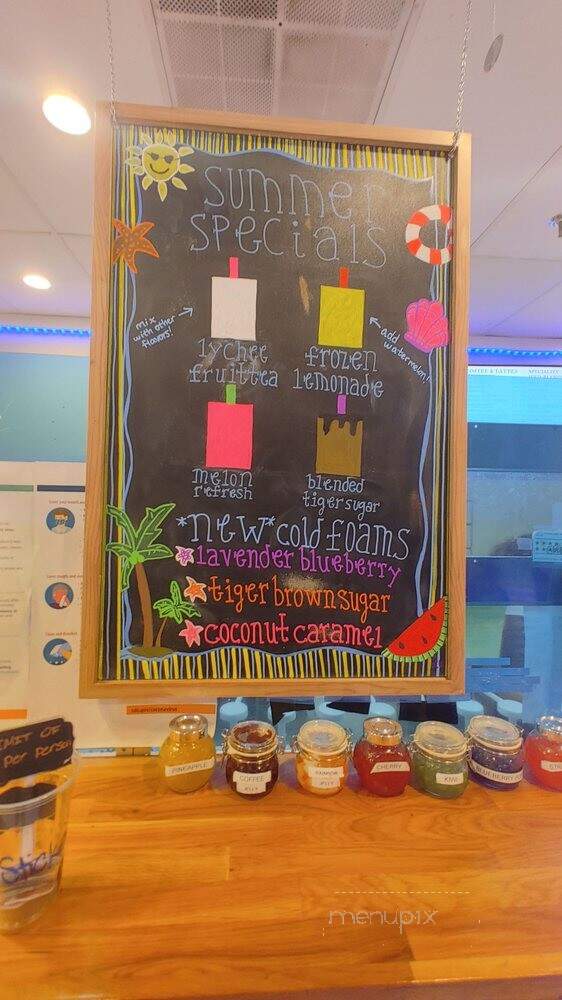 SUMMER
SPECIALS
mix
with other
flavors!
add
watermelon!
lychee
fruit tea
frozen
lemonade
melon
refresh
blended
tiger sugar
*new* cold foams
lavender blueberry
tiger brown sugar
coconut caramel
PINEAPPLE
COFFEE
JELLY
RAINBOW
JELLY
CHERRY
KIWI
BLUEBERRY
Per Person
Stick
menupix